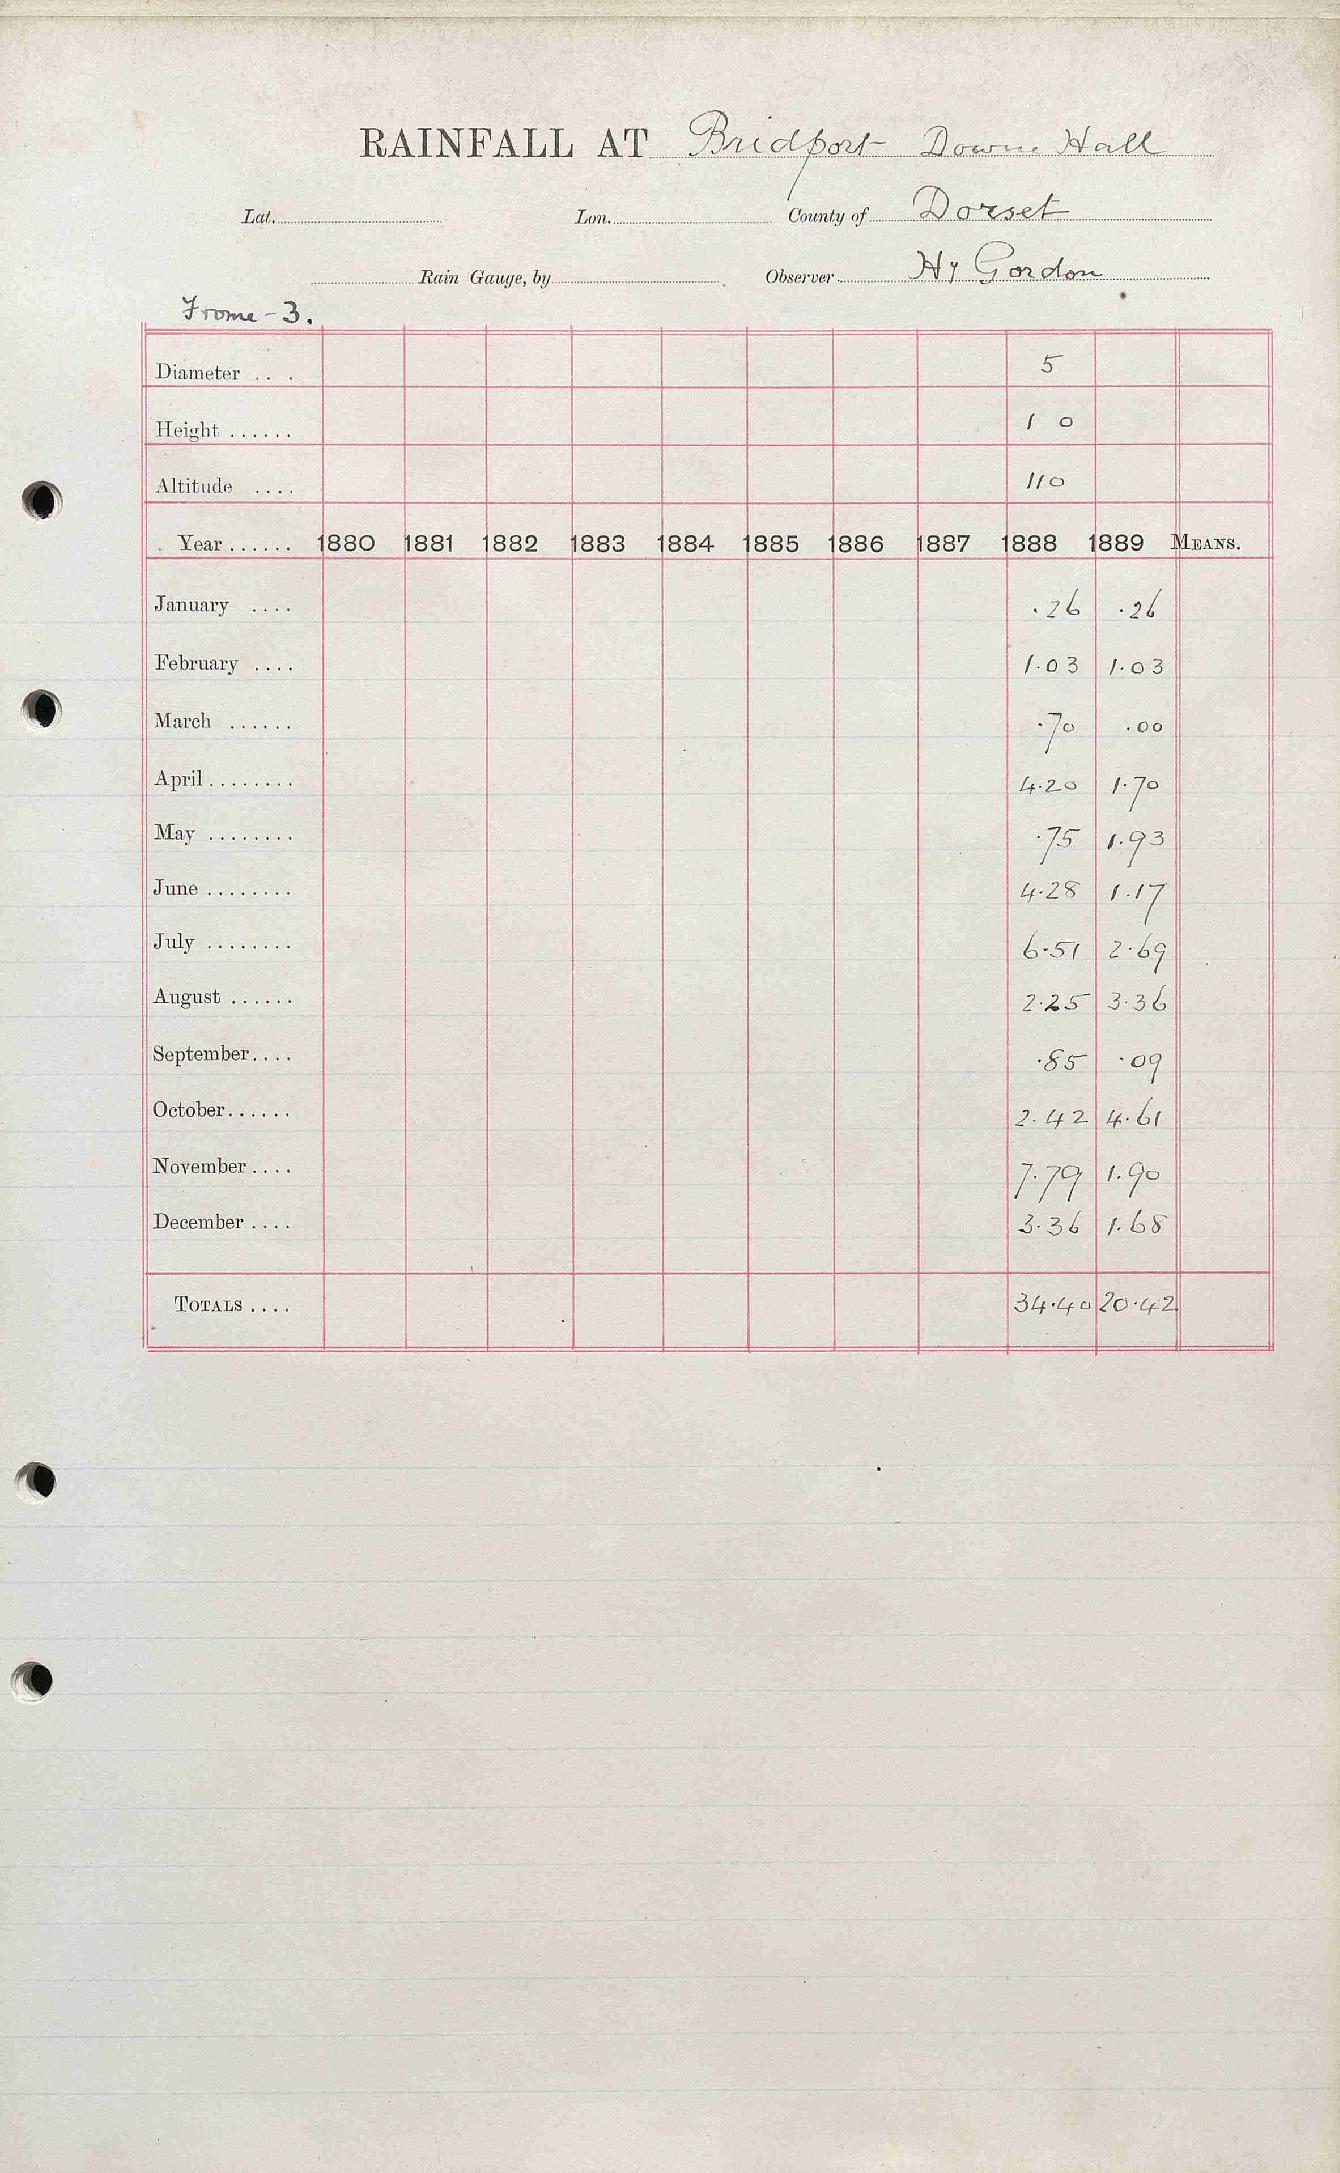 RAINFALL AT Bridport Downe Hall
Lat. Lon. County of Dorset
Rain Gauge, by Observer Hy Gordon
Frome - 3.
Diameter .. . 5
Height ...... 1 0
Altitude .... 110
Year ...... 1880 1881 1882 1883 1884 1885 1886 1887 1888 1889 MEANS.
January .... .26 .26
February .... 1.03 1.03
March ...... .70 .00
April ........ 4.20 1.70
May ........ .75 1.93
June ........ 4.28 1.17
July ........ 6.51 2.69
August ...... 2.25 3.36
September.... .85 .09
October...... 2.42 4.61
November .... 7.79 1.90
December .... 3.36 1.68
TOTALS .... 34.40 20.42